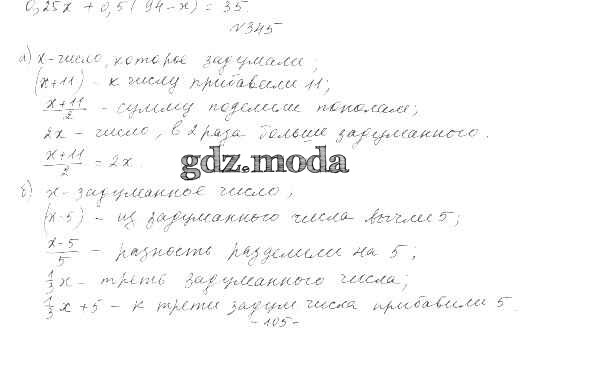 0,25x + 0,5(94-x) = 35.
№345
а) x-число, которое задумали;
(x+11) - к числу прибавили 11;
x+11/2 - сумму поделили пополам;
2x - число, в 2 раза больше задуманного.
x+11/2 = 2x.
gdz.moda
б) x-задуманное число,
(x-5) - из задуманного числа вычли 5;
x-5/5 - разность разделили на 5;
1/3x - треть задуманного числа;
1/3x+5 - к трети задум числа прибавили 5.
-105-